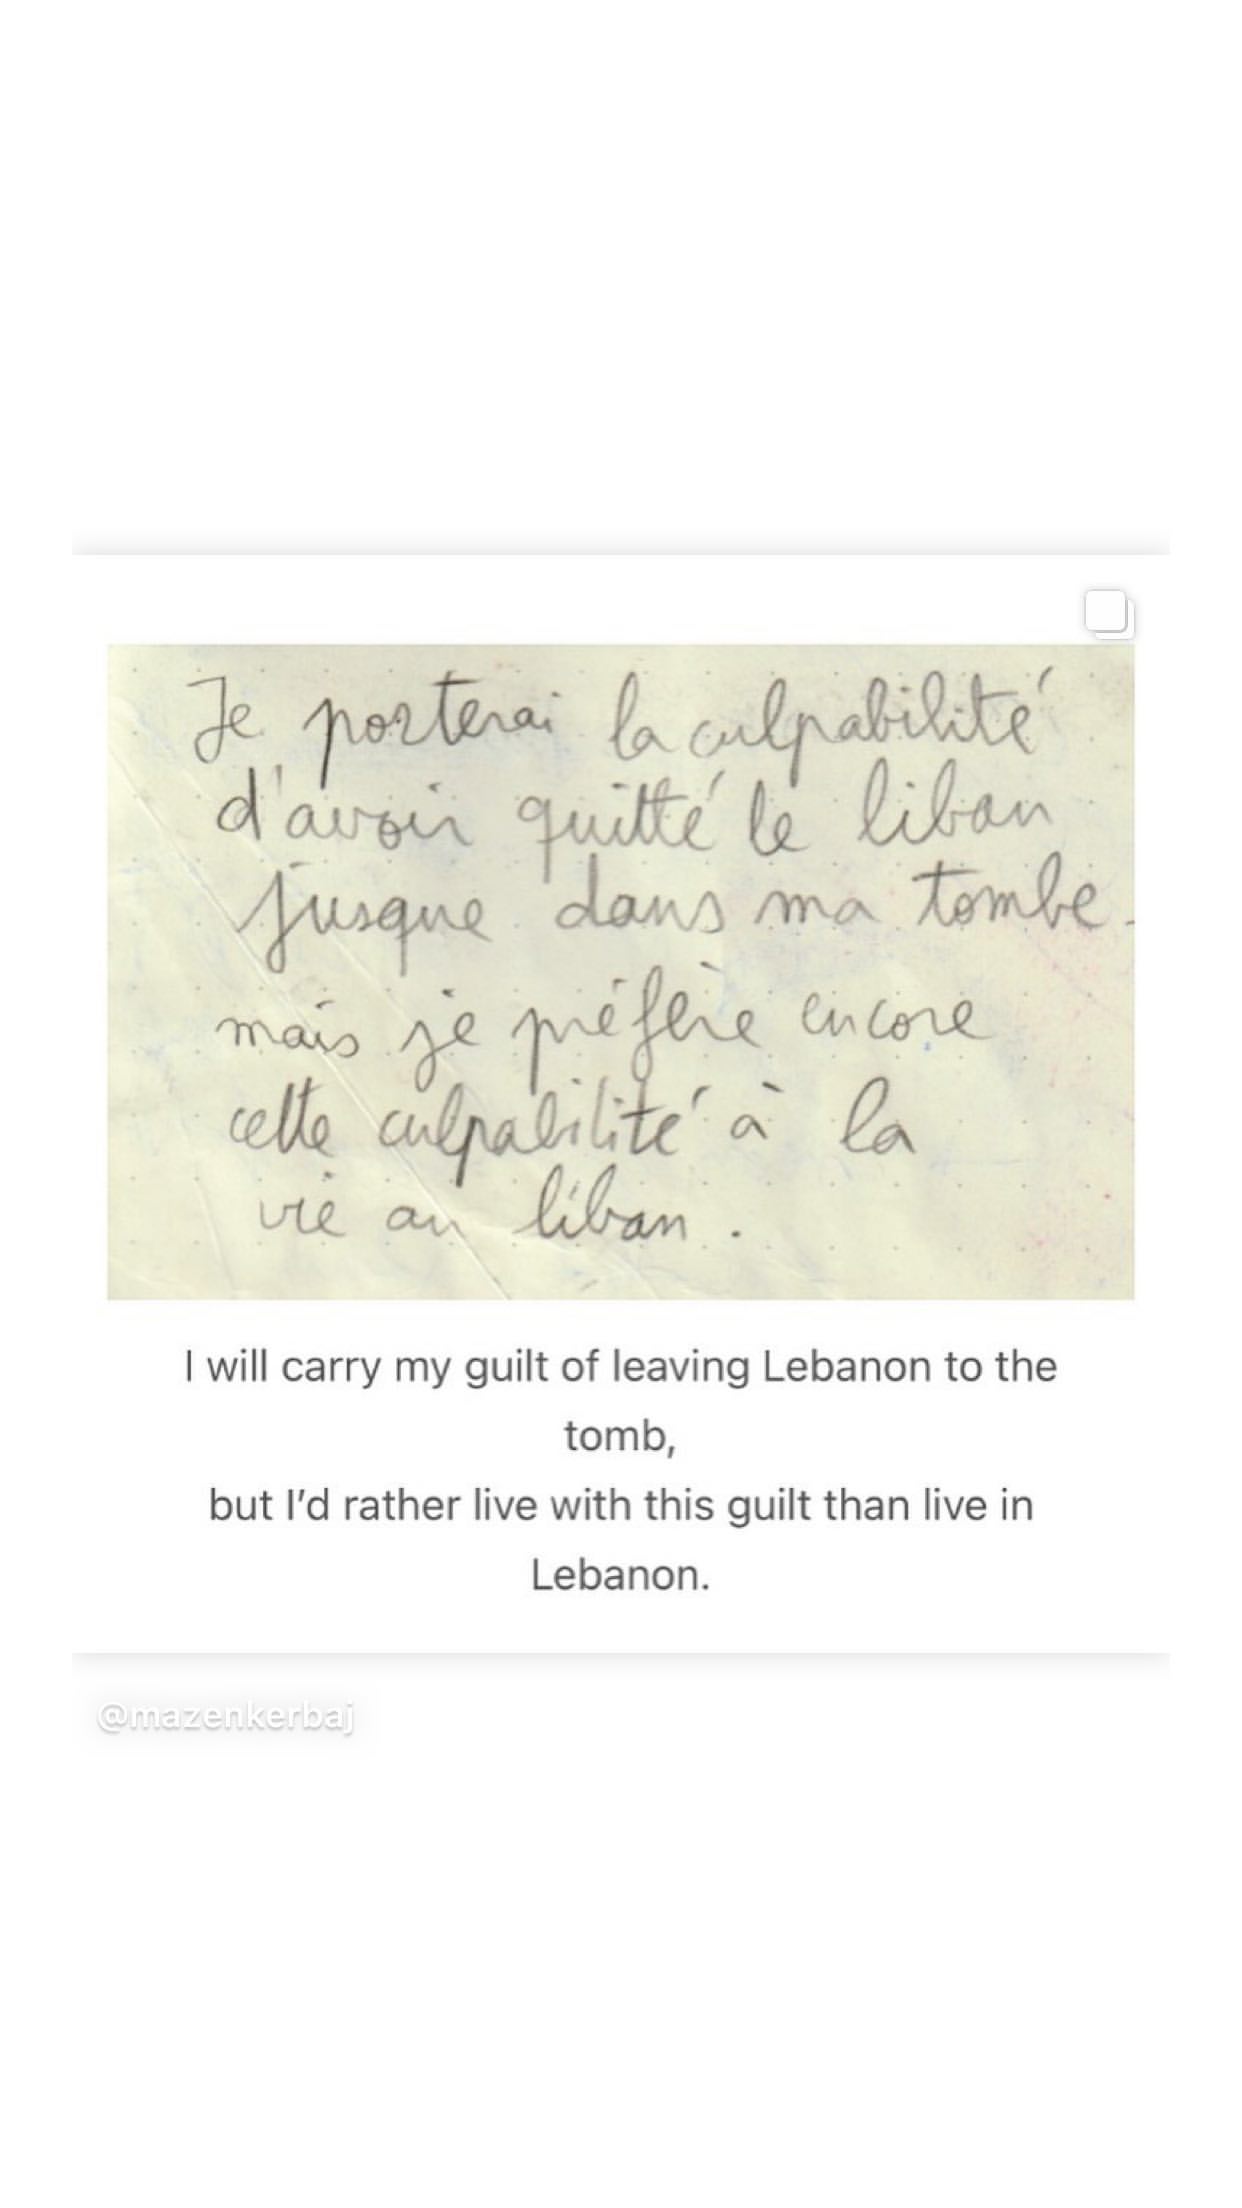 Je porterai la culpabilité
d'avoir quitté le liban
jusque dans ma tombe.
mais je préfère encore
cette culpabilité à la
vie au liban.
I will carry my guilt of leaving Lebanon to the
tomb,
but I'd rather live with this guilt than live in
Lebanon.
@mazenkerbaj